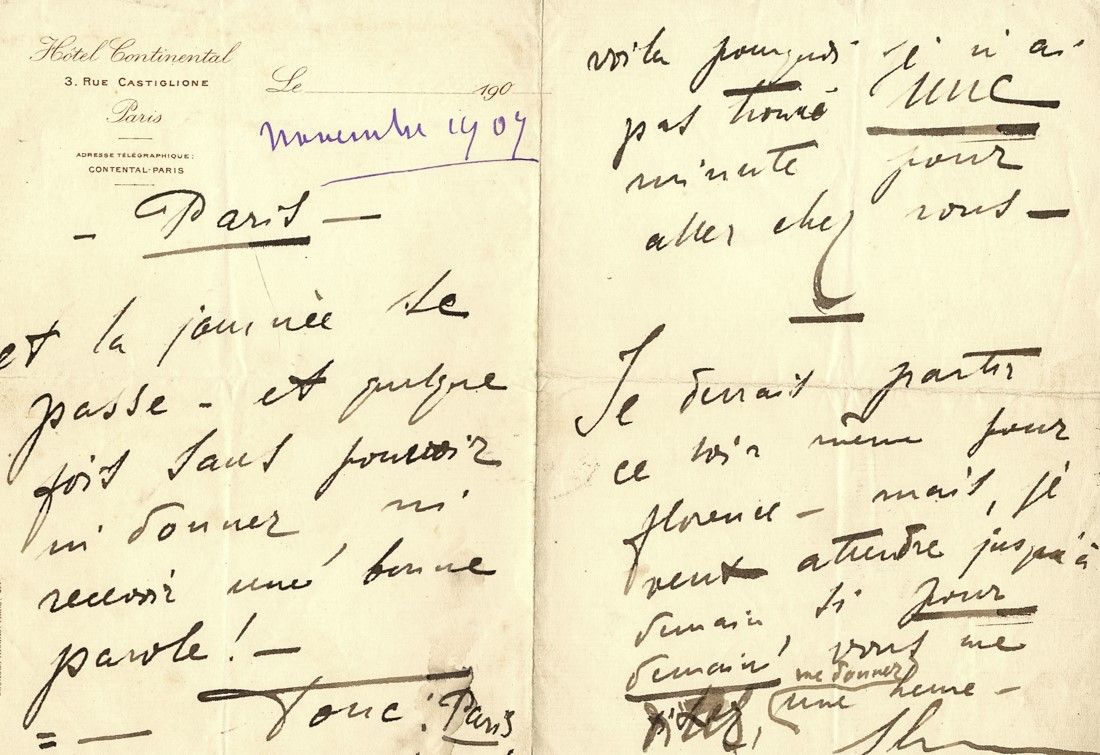 Hôtel Continental
3. Rue Castiglione
Paris
Adresse Télégraphique:
Contental-Paris
Le 190
novembre 1907
– Paris –
et la journée se
passe – et quelque
fois sans pouvoir
ni donner ni
recevoir une bonne
parole! –
= — Donc: Paris
voila pourquoi je n'ai
pas trouvé une
minute pour
aller chez vous –
Je devrais partir
ce soir même pour
florence – mais, je
veux attendre jusqu'à
demain si pour
demain, vous me
me donner
une heure –